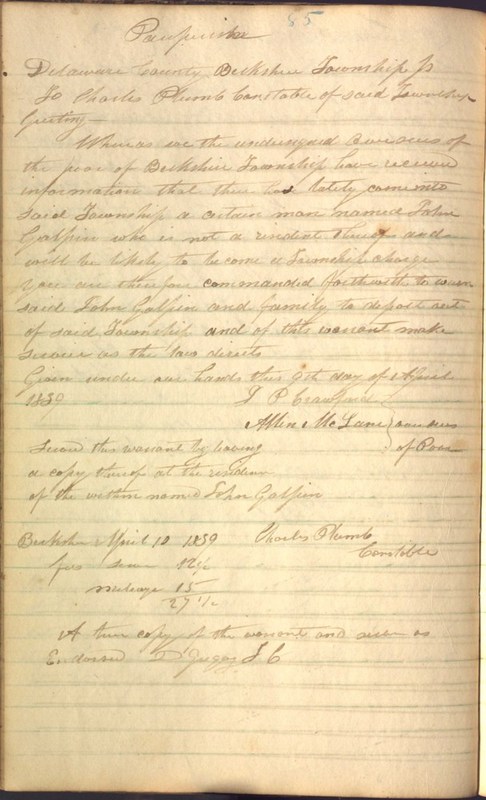 85
Delaware County Berkshire Township Ss
To Charles Plumb Constable of said Township
Greeting —
Whereas we the undersigned overseers of
the poor of Berkshire Township have received
information that there has lately come into
said Township a certain man named John
Galpin who is not a resident thereof and
will be likely to become a Township charge
you are therefore commanded forthwith to warn
said John Galpin and family to depart out
of said Township and of this warrant make
service as the law directs
Given under our hands this 9th day of April
1839 T P Crawford
Allen McLane overseers
of Poor
Served this warrant by leaving
a copy thereof at the residence
of the within named John Galpin
Berkshire April 10 1839 Charles Plumb
Constable
fees serv 12½
mileage 15
27½
A true copy of the warrant and service as
Endorsed T C